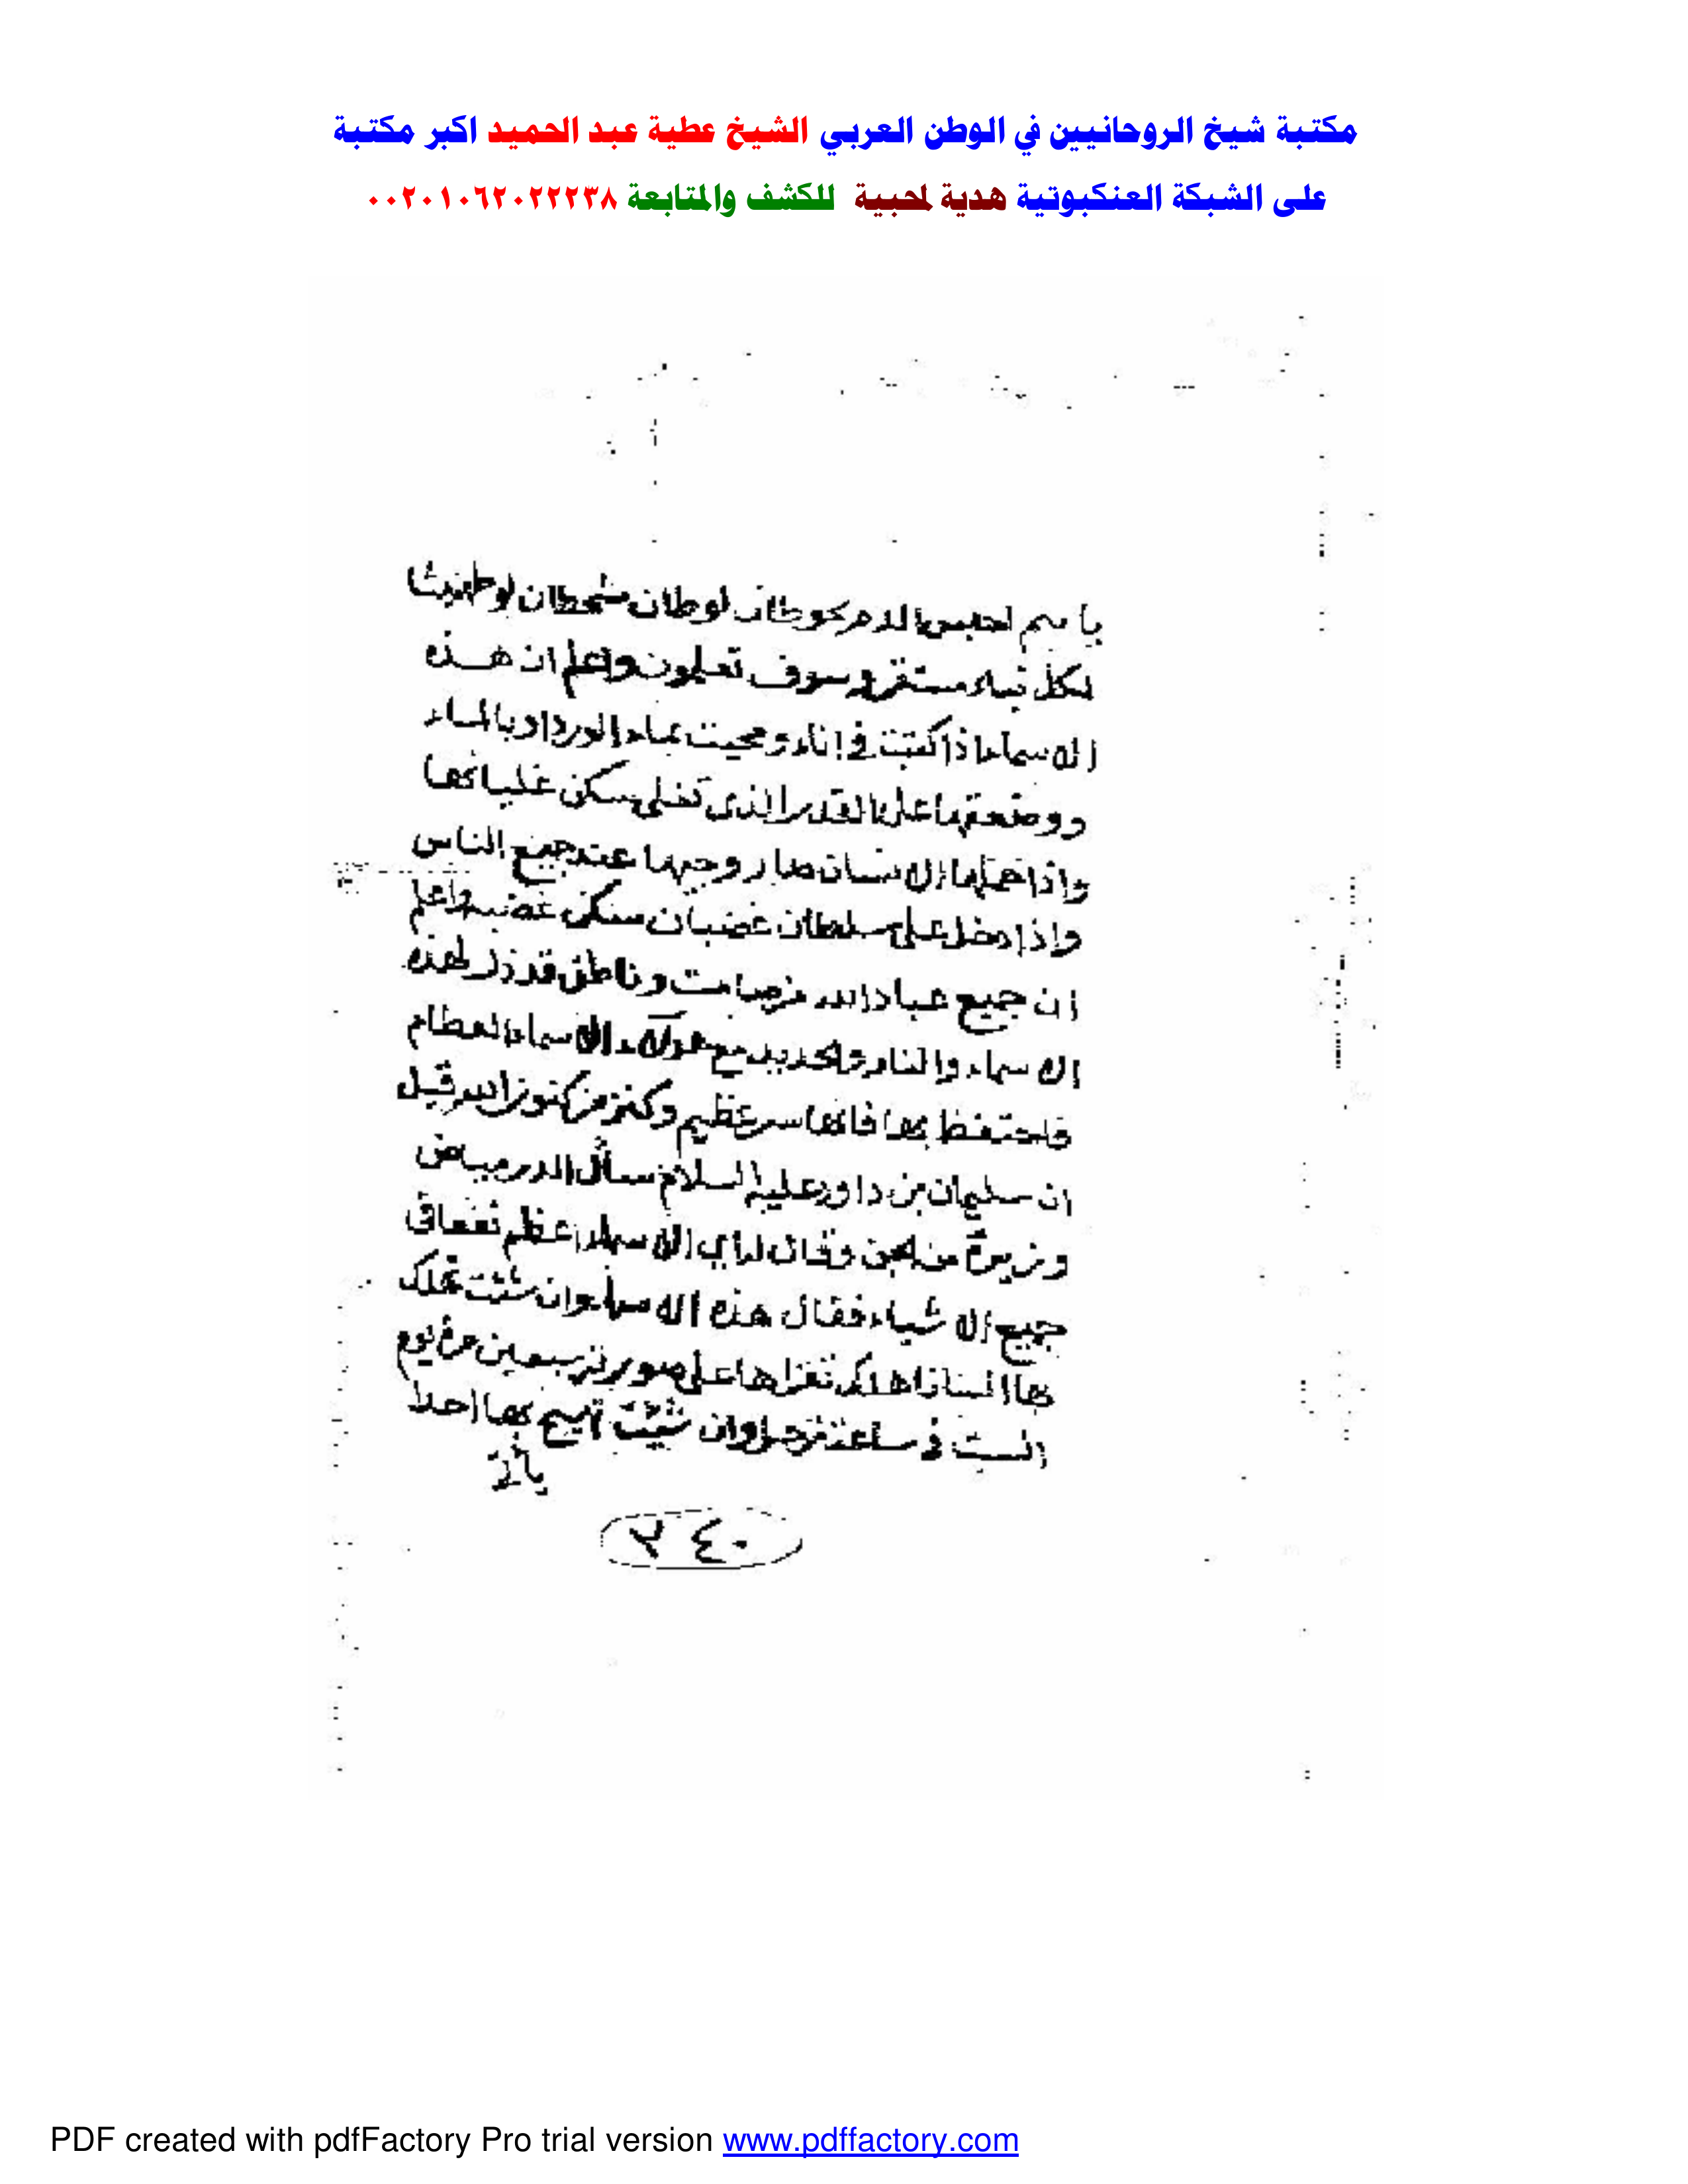 مكتبة شيخ الروحانيين في الوطن العربي الشيخ عطية عبد الحميد اكبر مكتبة
على الشبكة العنكبوتية هدية لمحبية للكشف والمتابعة ٠٠٢٠١٠٦٢٠٢٢٢٣٨
لوطان
لكل نباء مستقر وسوف تعلمون واعلم ان هذه
الاسماء اذا كتبت في اناء ومحيت بماء الورد او بالماء
ووضعتها على القدر الذى تغلى يسكن غليانها
واذا حملها الانسان صار وجيها عند جميع الناس
واذا دخل على سلطان غضبان سكن غضبه واعلم
ان جميع عباد الله من صامت وناطق قد ذل لهذه
الاسماء والنار والحديد مع الاسماء العظام
فاحتفظ بها فانها سر عظيم وكنز من كنوز الله قيل
ان سليمان بن داود عليه السلام سأل
وزيره من الجن وقال له اي الاسماء اعظم
جميع الاشياء فقال هذه الاسماء وان شئت
بها تقراها على سبعين مرة يوم
السبت في ساعة زحل وان شئت تهيج بها احدا
٢٤٠
PDF created with pdfFactory Pro trial version www.pdffactory.com